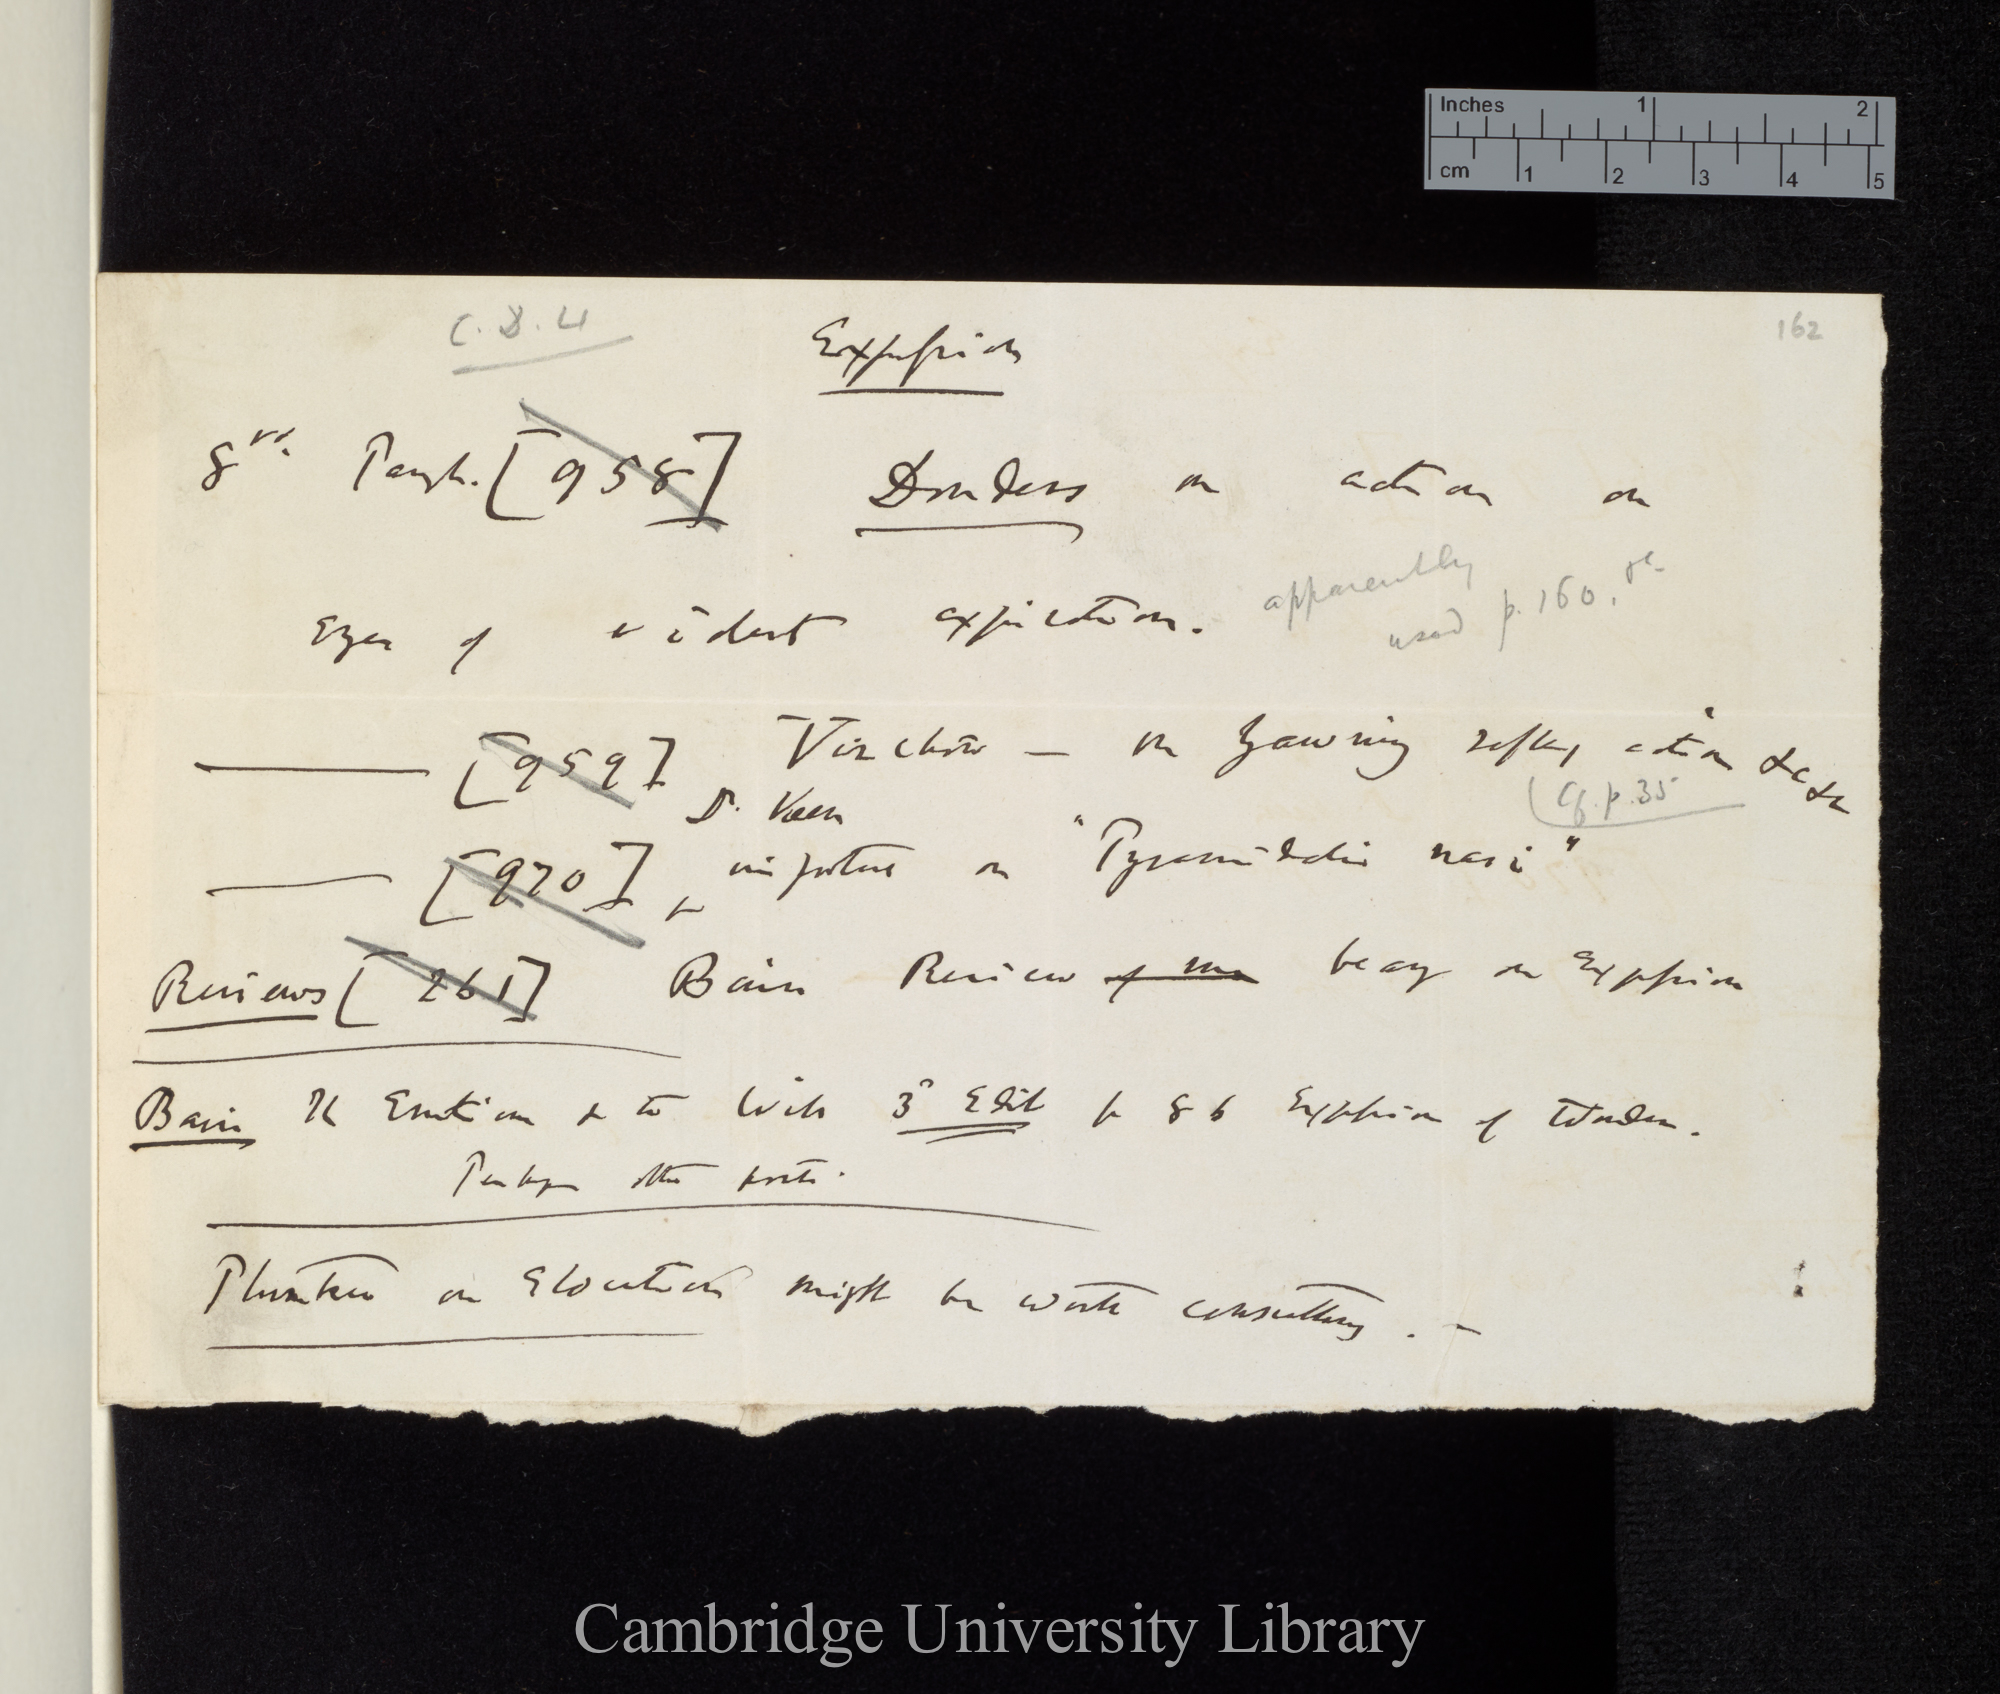 Inches 1 2
cm 1 2 3 4 5
162
C.D. 41
Expression
8vo. Pamph. [958] Donders on action on
Eyes of violent expiration.
apparently
used p. 160, &c
[959] Virchow — on Yawning reflex action &c &c
(Cf. p. 35
D. Veen
[970] important on "Pyramidalis nasi"
Reviews [261] Bain Review of me bearing on Expression
Bain The Emotions & the Will 3d Edit p 86 Expression of Wonder.
Perhaps other parts.
on Elocution might be worth consulting. —
Cambridge University Library